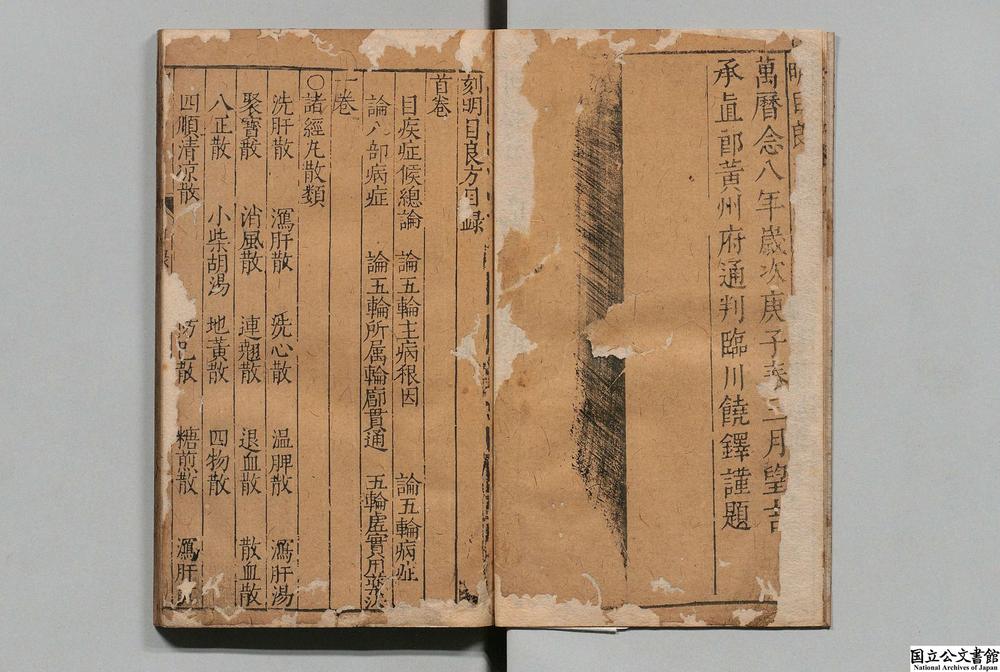 明目良
萬曆念八年歲次庚子春三月望吉
承直郎黃州府通判臨川饒鐸謹題
刻明目良方目錄
首卷
目疾症候總論 論五輪主病很因 論五輪病症
論八部病症 論五輪所属輪廓貫通 五輪虛實用藥法
一卷
○諸經丸散類
洗肝散 瀉肝散 洗心散 温脾散 瀉肝湯
聚寶散 消風散 連翹散 退血散 散血散
八正散 小柴胡湯 地黃散 四物散
四順清凉散 防己散 糖煎散 瀉肝
国立公文書館
National Archives of Japan